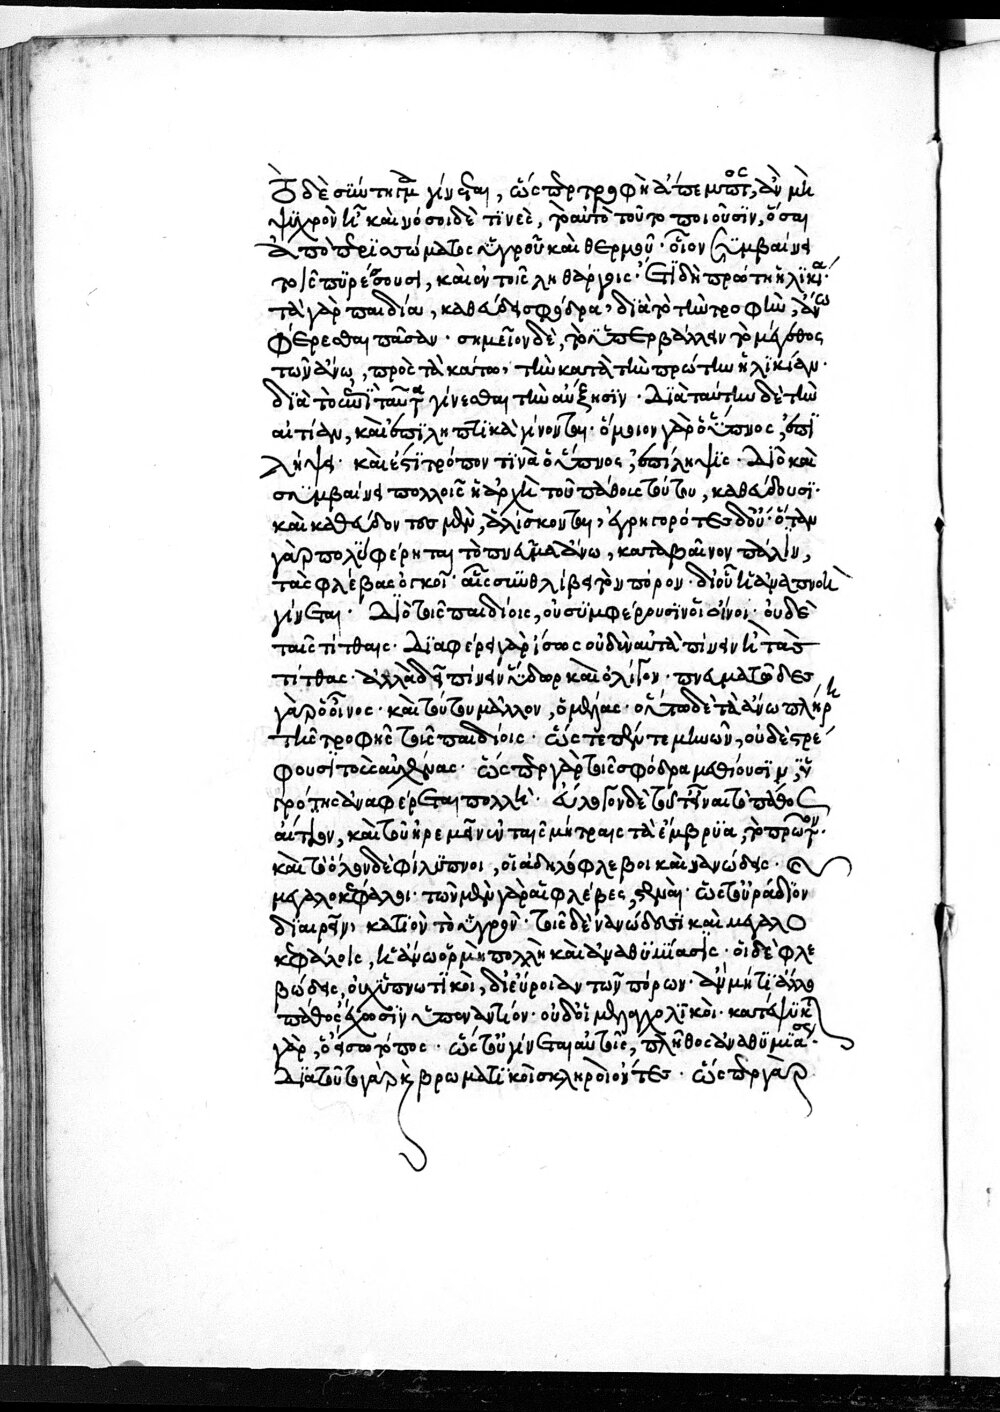 Ὁ δὲ συντηκτικὸς γίνεται, ὥσπερ τροφὴ ἄπεπτος, ἂν μὴ
ψυχρὸν ᾖ· καὶ νόσοι δὲ τινὲς, τὸ αὐτὸ τοῦτο ποιοῦσιν, ὅσαι
ἀπὸ περισσώματος ὑγροῦ καὶ θερμοῦ· οἷον συμβαίνει
τοῖς πυρέσσουσι, καὶ ἐν τοῖς ληθάργοις· Ἔτι δὴ πρώτη ἡλικία·
τὰ γὰρ παιδία, καθεύδει σφόδρα, διὰ τὸ τὴν τροφὴν, ἄνω
φέρεσθαι πᾶσαν· σημεῖον δὲ, τὸ ὑπερβάλλειν τὸ μέγεθος
τῶν ἄνω, πρὸς τὰ κάτω, τὴν κατὰ τὴν πρώτην ἡλικίαν·
διὰ τὸ ἐπὶ ταῦτα γίνεσθαι τὴν αὔξησιν· Διὰ ταύτην δὲ τὴν
αἰτίαν, καὶ ἐπιληπτικὰ γίνονται· ὅμοιον γὰρ ὁ ὕπνος, ἐπι
λήψει· καὶ ἐστὶ τρόπον τινὰ ὁ ὕπνος, ἐπίληψις· Διὸ καὶ
συμβαίνει πολλοῖς ἡ ἀρχὴ τοῦ πάθους τούτου, καθεύδουσι·
καὶ καθεύδοντες μὲν, ἁλίσκονται, ἐγρηγορότες δ' οὔ· ὅταν
γὰρ πολὺ φέρηται τὸ πνεῦμα ἄνω, καταβαῖνον πάλιν,
τὰς φλέβας ὀγκοῖ· καὶ συνθλίβει τὸν πόρον· δι' οὗ ἡ ἀναπνοὴ
γίνεται· Διὸ τοῖς παιδίοις, οὐ συμφέρουσιν οἱ οἶνοι· οὐδὲ
ταῖς τίτθαις· Διαφέρει γὰρ ἴσως οὐδὲν αὐτὰ πίνειν ἢ τὰς
τίτθας· ἀλλὰ δεῖ πίνειν ὕδωρ καὶ ὀλίγον· πνευματῶδες
γὰρ ὁ οἶνος· καὶ τούτου μᾶλλον, ὁ μέλας· οὕτω δὲ τὰ ἄνω πλήρη
τῆς τροφῆς τοῖς παιδίοις· ὥστε πέντε μηνῶν, οὐδὲ στρέ
φουσι τοὺς αὐχένας· ὥσπερ γὰρ τοῖς σφόδρα μεθύουσιν, ὑ
γρότης ἀναφέρεται πολλὴ· Εὔλογον δὲ τοῦτ' εἶναι τὸ πάθος
αἴτιον, καὶ τοῦ ἠρεμεῖν ἐν ταῖς μήτραις τὰ ἔμβρυα, τὸ πρῶτον·
καὶ τὸ ὅλον δὲ φίλυπνοι, οἱ ἀδηλόφλεβοι καὶ νανώδεις· οἱ
μεγαλοκέφαλοι· τῶν μὲν γὰρ αἱ φλέβες, στεναὶ· ὥστ' οὐ ῥάδιον
διαρρεῖν, κατιὸν τὸ ὑγρὸν· τοῖς δὲ νανώδεσι καὶ μεγαλο
κεφάλοις, ἡ ἄνω ὁρμὴ πολλὴ καὶ ἀναθυμίασις· οἱ δὲ φλε
βώδεις, οὐχ ὑπνωτικοὶ, δι' εὔροιαν τῶν πόρων· ἂν μή τι ἄλλο
πάθος ἔχωσιν ὑπεναντίον· οὐδ' οἱ μελαγχολικοὶ· κατέψυκται
γὰρ, ὁ ἔσω τόπος· ὥστ' οὐ γίνεται αὐτοῖς, πλῆθος ἀναθυμιάσεως·
Διὰ τοῦτο γὰρ καὶ βρωματικοὶ σκληροὶ ὄντες· ὥσπερ γὰρ